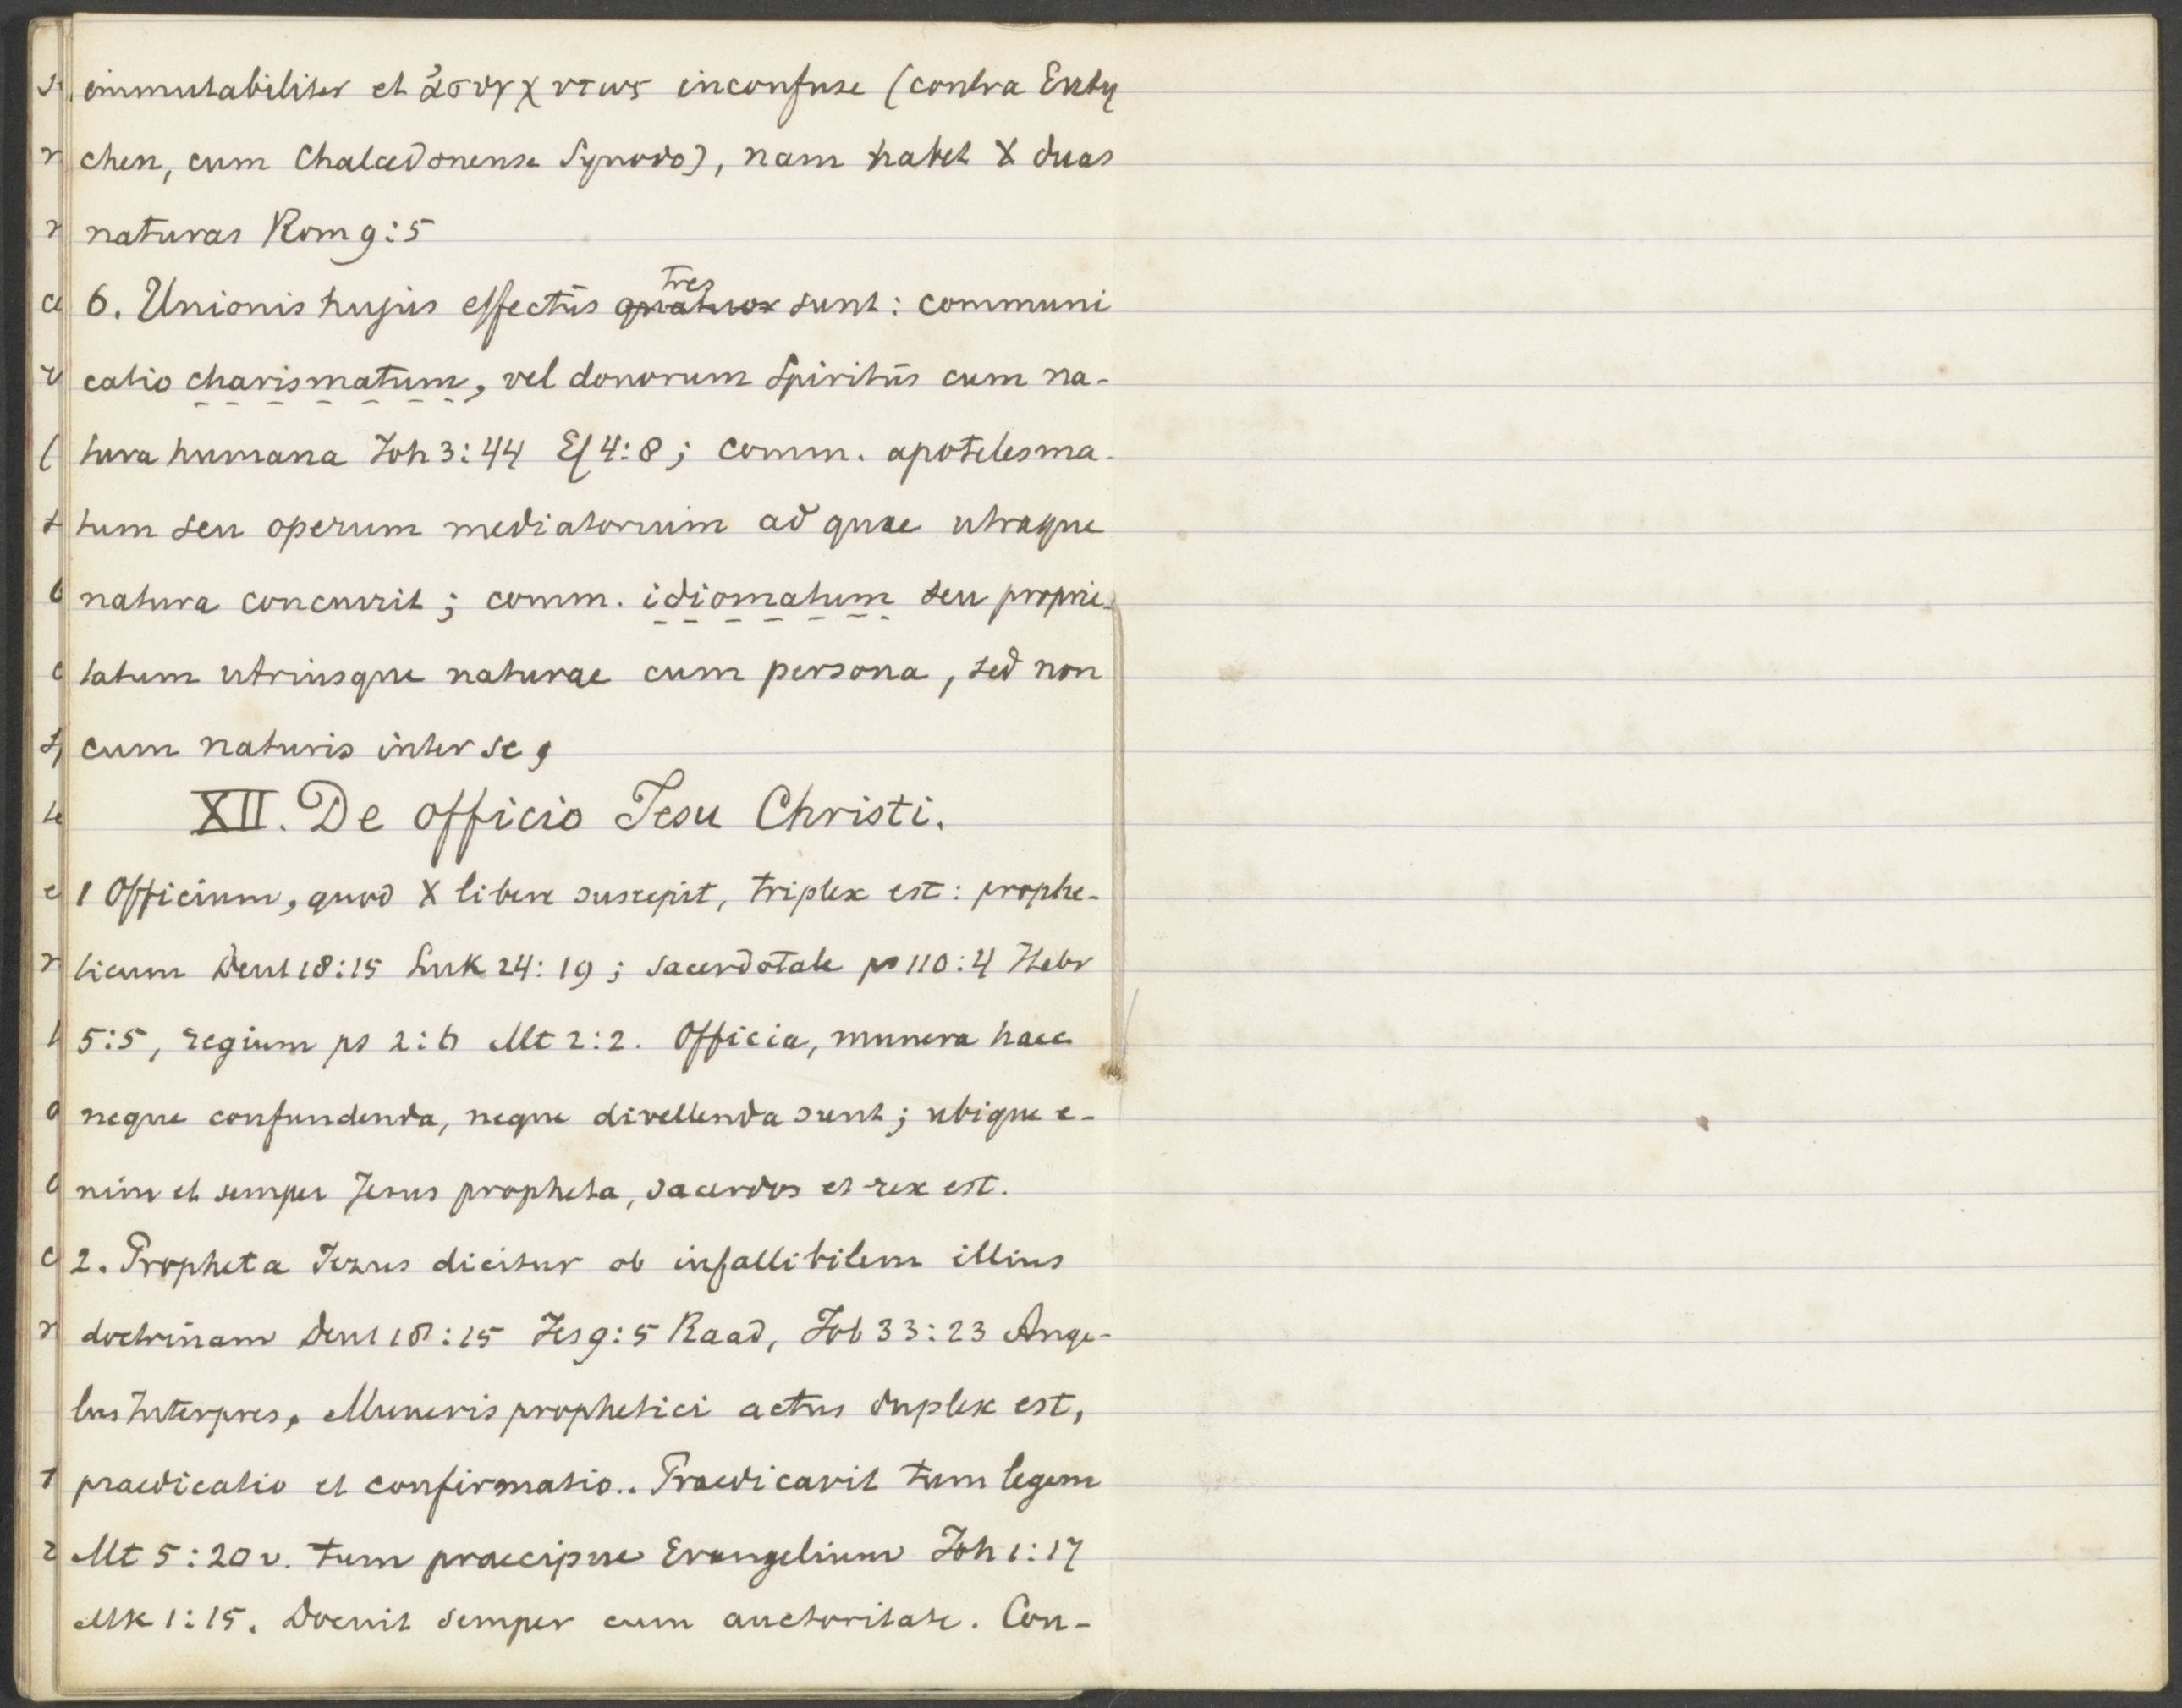 immutabiliter et ἀσυγχυτως inconfuse (contra Euty
chen, cum Chalcedonense Synodo), nam habet X duas
naturas Rom 9:5
6. Unionis hujus effectūs tres sunt: communi
catio charismatum, vel donorum Spiritūs cum na-
tura humana Joh 3:44 Ef 4:8; comm. apotelesma-
tum seu operum mediatorium ad quae utraque
natura concurrit; comm. idiomatum seu proprie-
tatum utriusque naturae cum persona, sed non
cum naturis inter se,
XII. De officio Jesu Christi.
1 Officium, quod X libere suscepit, triplex est: prophe-
ticum Deut 18:15 Luk 24:19; sacerdotale ps 110:4 Hebr
5:5, regium ps 2:6 Mt 2:2. Officia, munera haec
neque confundenda, neque divellenda sunt; ubique e-
nim et semper Jesus propheta, sacerdos et rex est.
2. Propheta Jezus dicitur ob infallibilem illius
doctrinam Deut 18:15 Jes 9:5 Raad, Job 33:23 Ange-
lus Interpres. Muneris prophetici actus duplex est,
praedicatio et confirmatio.. Praedicavit tum legem
Mt 5:20 v. tum praecipue Evangelium Joh 1:17
Mk 1:15. Docuit semper cum auctoritate. Con-